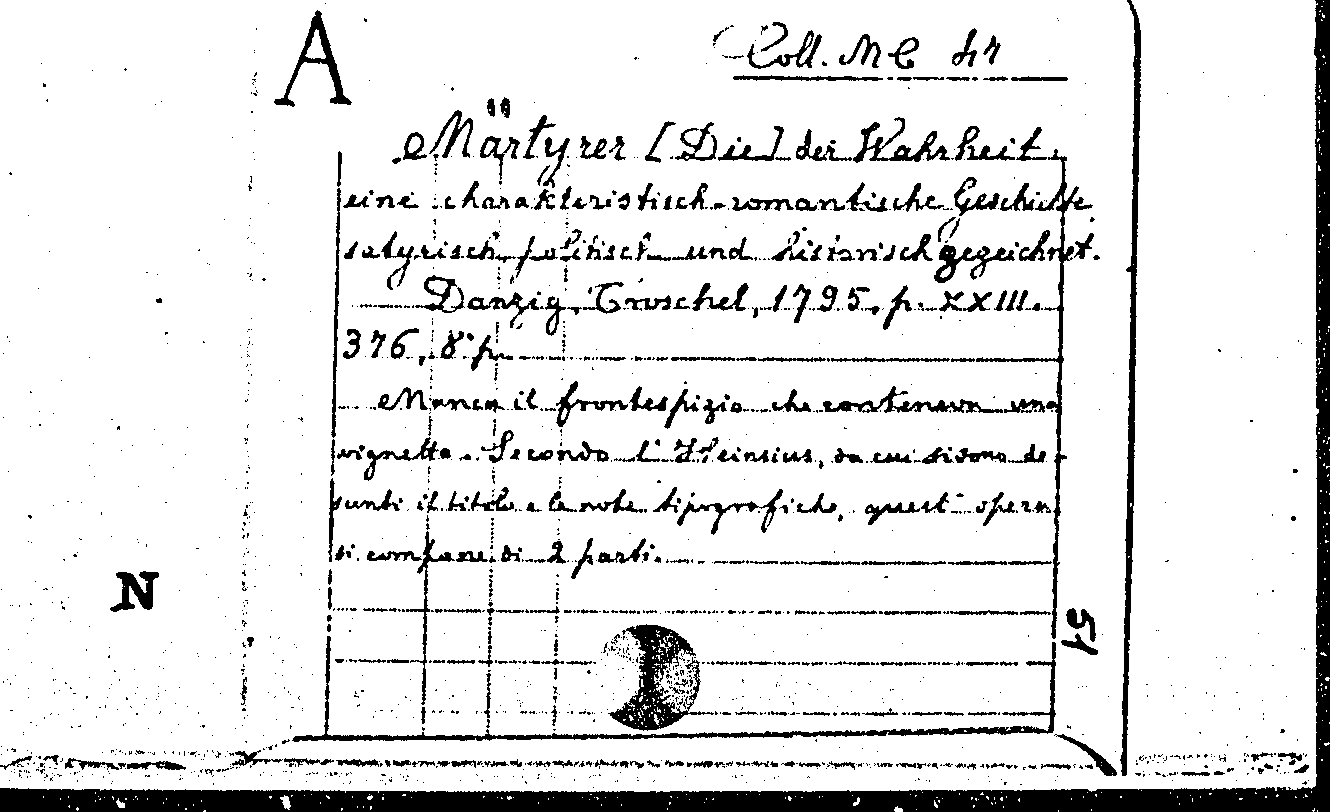 A
Coll. MC 47
Märtyrer [Die] der Wahrheit.
eine charakteristisch-romantische Geschichte
satyrisch politisch und historisch gezeichnet.
Danzig, Troschel, 1795, p. XXIII.
376, 8° p.
Manca il frontespizio che conteneva una
vignetta. Secondo l'Heinsius, da cui si sono de-
sunti il titolo e le note tipografiche, quest'opera
si compone di 2 parti.
N
51